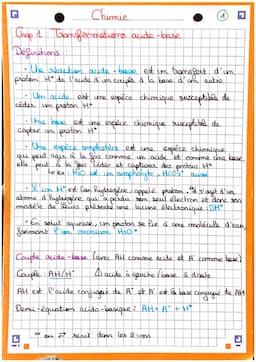 Chimie
1
Chap 1 : Transformations acide-base
Définitions :
• Une réaction acide-base est un transfert d'un
proton H⁺ de l'acide d'un couple à la base d'un autre.
• Un acide est une espèce chimique susceptible de
céder un proton H⁺
• Une base est une espèce chimique susceptible de
capter un proton H⁺
• Une espèce amphotère est une espèce chimique
qui peut agir à la fois comme un acide et comme une base,
elle peut à la fois céder et capturer des protons H⁺
↳ ex : H₂O est un ampholyte, HCO₃⁻ aussi
• L'ion H⁺ est l'ion hydrogène, appelé proton. Il s'agit d'un
atome d'hydrogène qui a perdu son seul électron et dont son
modèle de Lewis présente une lacune électronique : □H⁺
• En solut° aqueuse, un proton se lie à une molécule d'eau
formant l'ion oxonium H₃O⁺
Couple acide-base (avec AH comme acide et A⁻ comme base)
Couple : AH/A⁻ ⚠ acide à gauche / base à droite
AH est l'acide conjugué de A⁻ et A⁻ est la base conjuguée de AH
Demi-équation acido-basique : AH = A⁻ + H⁺
= ou ⇄ réact° dans les 2 sens